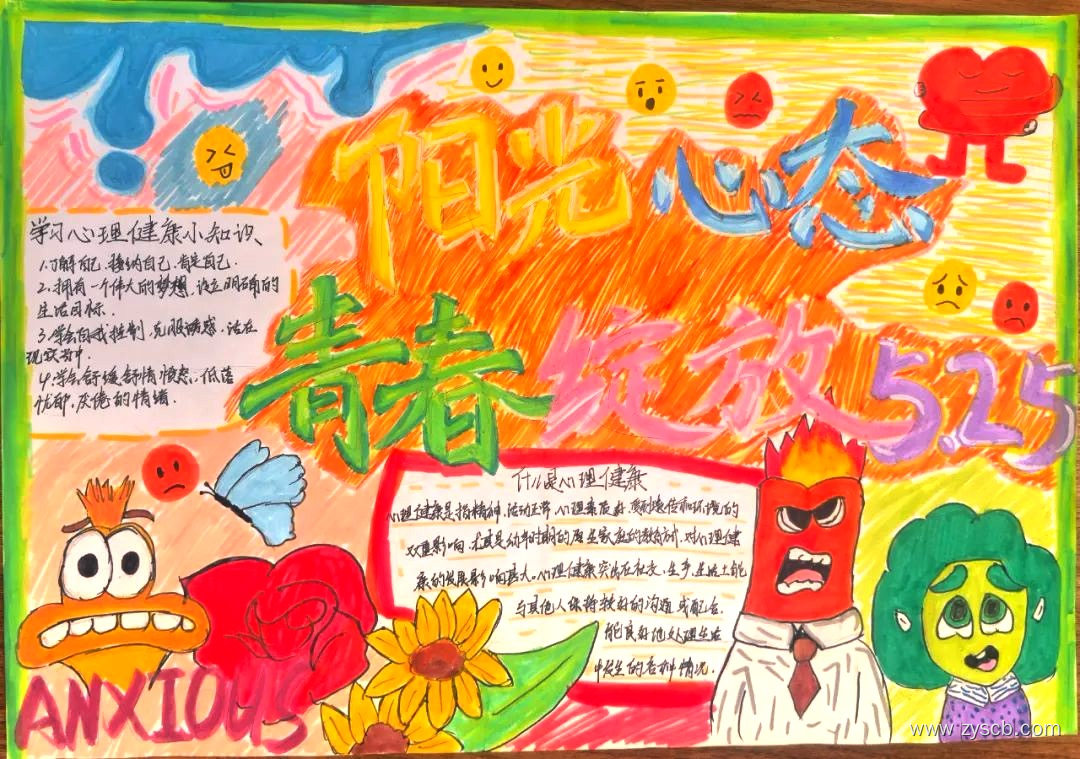 阳光心态
青春绽放5.25
学习心理健康小知识
1.了解自己、接纳自己、肯定自己.
2.拥有一个伟大的梦想,设立明确的
生活目标.
3.学会自我控制,克服诱惑,活在
现实当中.
4.学会舒缓舒情愤怒、低落
忧郁、厌倦的情绪.
什么是心理健康
心理健康是指精神、活动正常、心理素质好.受到遗传和环境的
双重影响,尤其是幼年时期的原生家庭的教育方式,对心理健
康的发展影响甚大.心理健康突出在社交、生产、生活上能
与其他人保持较好的沟通或配合.
能良好地处理生活
中发生的各种情况.
ANXIOUS
www.zyscb.com